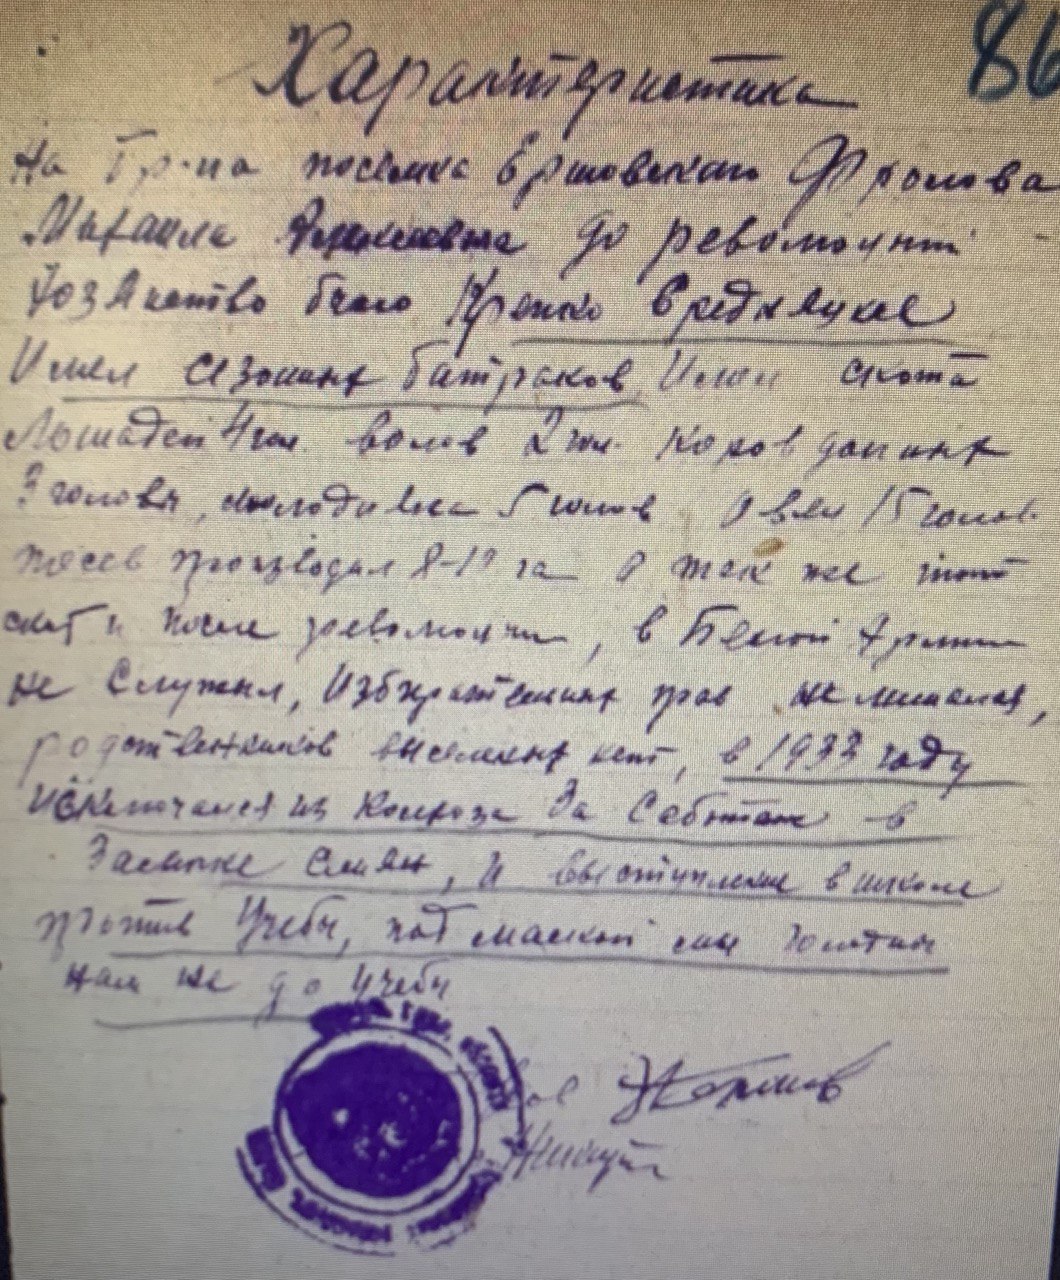 86
Характеристика
На Гр-на поселка Ершовскаи Фролова
Михаила до революции
Хозяиство было Крепко Вредняцкое
Имел сезоных батраков, Имел скота
Лошадей 4 шт. волов 2 шт. Коров доиных
3 головы, молодняка 5 голов Овец 15 голов.
посев производил 8-10 га а так же тот
скот и после революции, в Белой Армии
не Служил, Избирательных прав не лишался,
родственников высланых нет, в 1933 году
исключался из Колхоза За Саботаж в
Засыпке Семян, и выступление в школе
против Учебы, под маской мы голодны
нам не до учебы